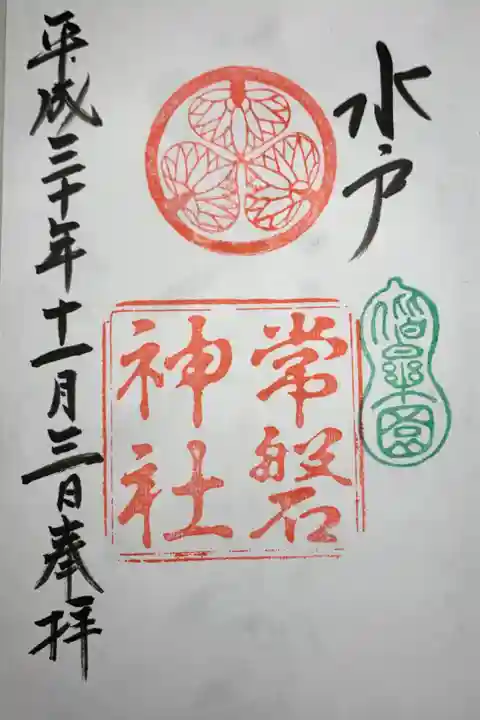 水戸
偕楽園
常磐
神社
平成三十年十一月三日奉拝